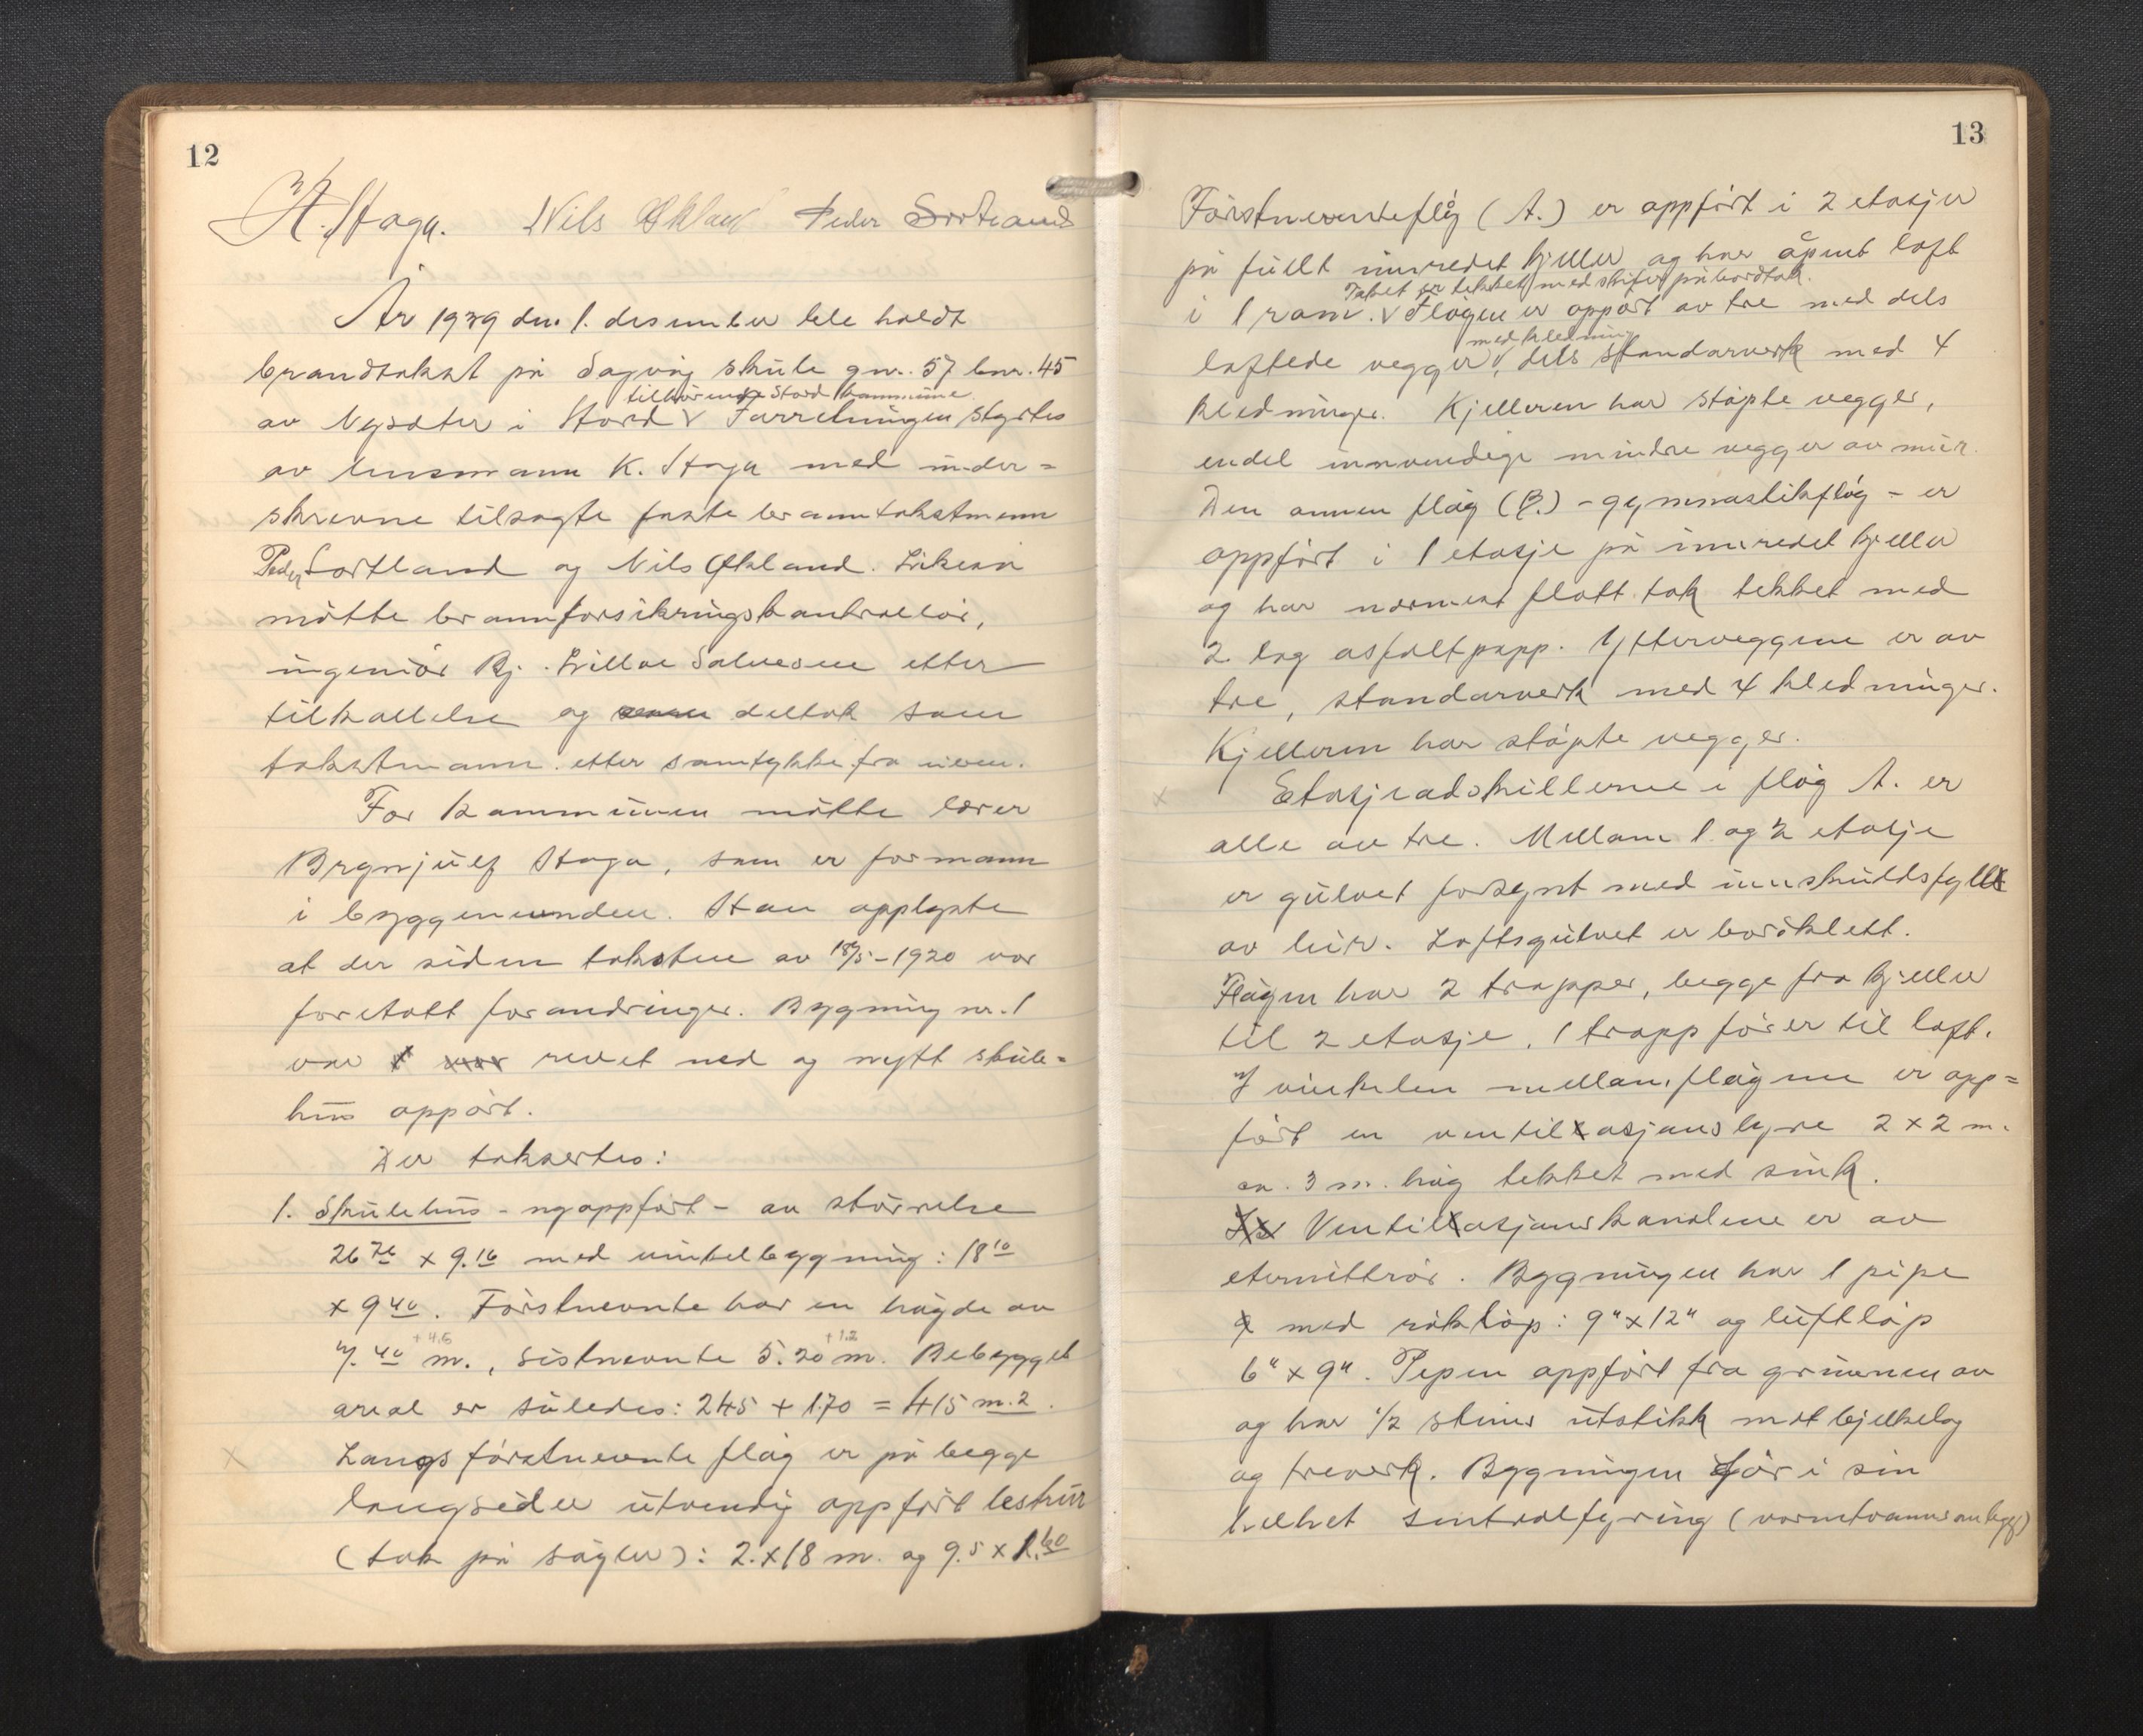 12
K. Haga. Nils Økland Peder Sortland
År 1939 den 1. desember ble holdt
branntakst på Sagvåg skule gnr. 57 bnr. 45
tilhørende Stord kommune.
av Nysæter i Stord V Forretningen styrtes
av lensmann K. Haga med under=
skrevne tilsagte faste branntakstmenn
Peder Sortland og Nils Økland. Likeså
møtte brannforsikringskontrollør,
ingeniør Bj. Lilloe Salvesen etter
tilkallelse og deltok som
takstmann etter samtykke fra
For kommunen møtte lærer
Brynjulf Haga, som er formann
i byggenemnden. Han opplyste
at der siden taksten av 18/5-1920 var
foretatt forandringer. Bygning nr. 1
var revet ned og nytt skule=
hus oppørt.
Der taksertes:
1. Skulehus - nyoppført - av størrelse
26 76 x 9.16 med vinkelbygning: 18 10
x 9 40. Førstnevnte har en høgde av
+ 4.6 + 1.2
7. 40 m., sistnevnte 5.20 m. Bebygget
areal er således: 245 + 170 = 415 m.2.
x
Langs førstnevnte fløg er på begge
langsider utvendig oppført leskur
(tak på søyler): 2.x18 m. og 9.5 x 1.60
13
Førstnevntefløg (A.) er oppført i 2 etasjer
på fullt innredet kjeller og har åpent loft
Taket er tekket med skifer på bordtak.
i 1 rom. V Fløgen er oppørt av tre med dels
med kledning
loftede vegger V, dels standarverk med 4
kledninger. Kjelleren har støpte vegger,
endel innvendige mindre vegger av mur.
Den annen fløg (B.) - gymnastikfløg - er
oppført i 1 etasje på innredet kjeller
og har nærmest flatt tak tekket med
2 lag asfaltpapp. Ytterveggene er av
tre, standarverk med 4 kledninger.
Kjelleren har støpte vegger.
x
Etasjeadskillerne i fløg A. er
alle av tre. Mellom 1 og 2 etasje
er gulvet forsynt med innskuddsfyll
av leir. Loftsgulvet er bordklett.
Fløgen har 2 trapper, begge fra kjeller
til 2 etasje. 1 trapp fører til loft.
I vinkelen mellom fløgene er opp=
ført en ventilasjonslyre 2 x 2 m.
ca. 3 m. høg tekket med sink.
Ventilasjonskanalene er av
eternittrør. Bygningen har 1 pipe
med røkløp: 9" x 12" og luftløp
6" x 9". Pipen oppført fra grunnen av
og har 1/2 steins utstikk mot bjelkelag
og treverk. Bygningen får i sin
helhet sentralfyring (varmtvannsanlegg)